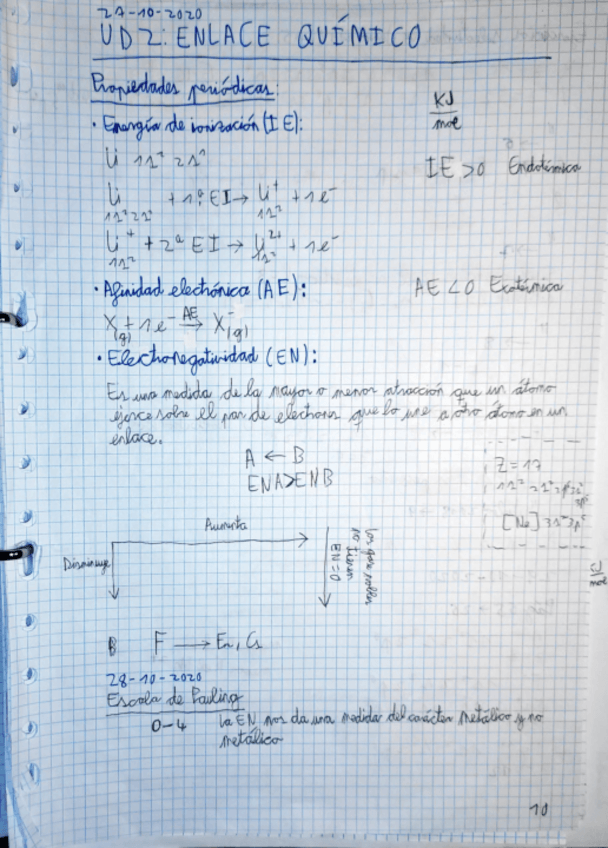 27-10-2020
UD2: ENLACE QUÍMICO
Propiedades periódicas:
KJ
mol
· Energía de ionización (IE):
Li 1s² 2s¹
IE >0 Endotérmica
Li + 1ª EI → Li⁺ + 1e⁻
1s² 2s¹ 1s²
Li⁺ + 2ª EI → Li²⁺ + 1e⁻
1s²
· Afinidad electrónica (AE):
AE <0 Exotérmica
X(g) + 1e⁻ AE→ X⁻(g)
· Electronegatividad (EN):
Es una medida de la mayor o menor atracción que un átomo
ejerce sobre el par de electrones que lo une a otro átomo en un
enlace.
A ← B
ENA>ENB
Z = 17
1s² 2s² 2p⁶ 3s²
3p⁵
[Ne] 3s² 3p⁵
Aumenta
Disminuye
Los gases nobles
no tienen
EN=0
KJ
mol
F → Cs
28-10-2020
Escala de Pauling
0-4 La EN nos da una medida del carácter metálico y no
metálico
10